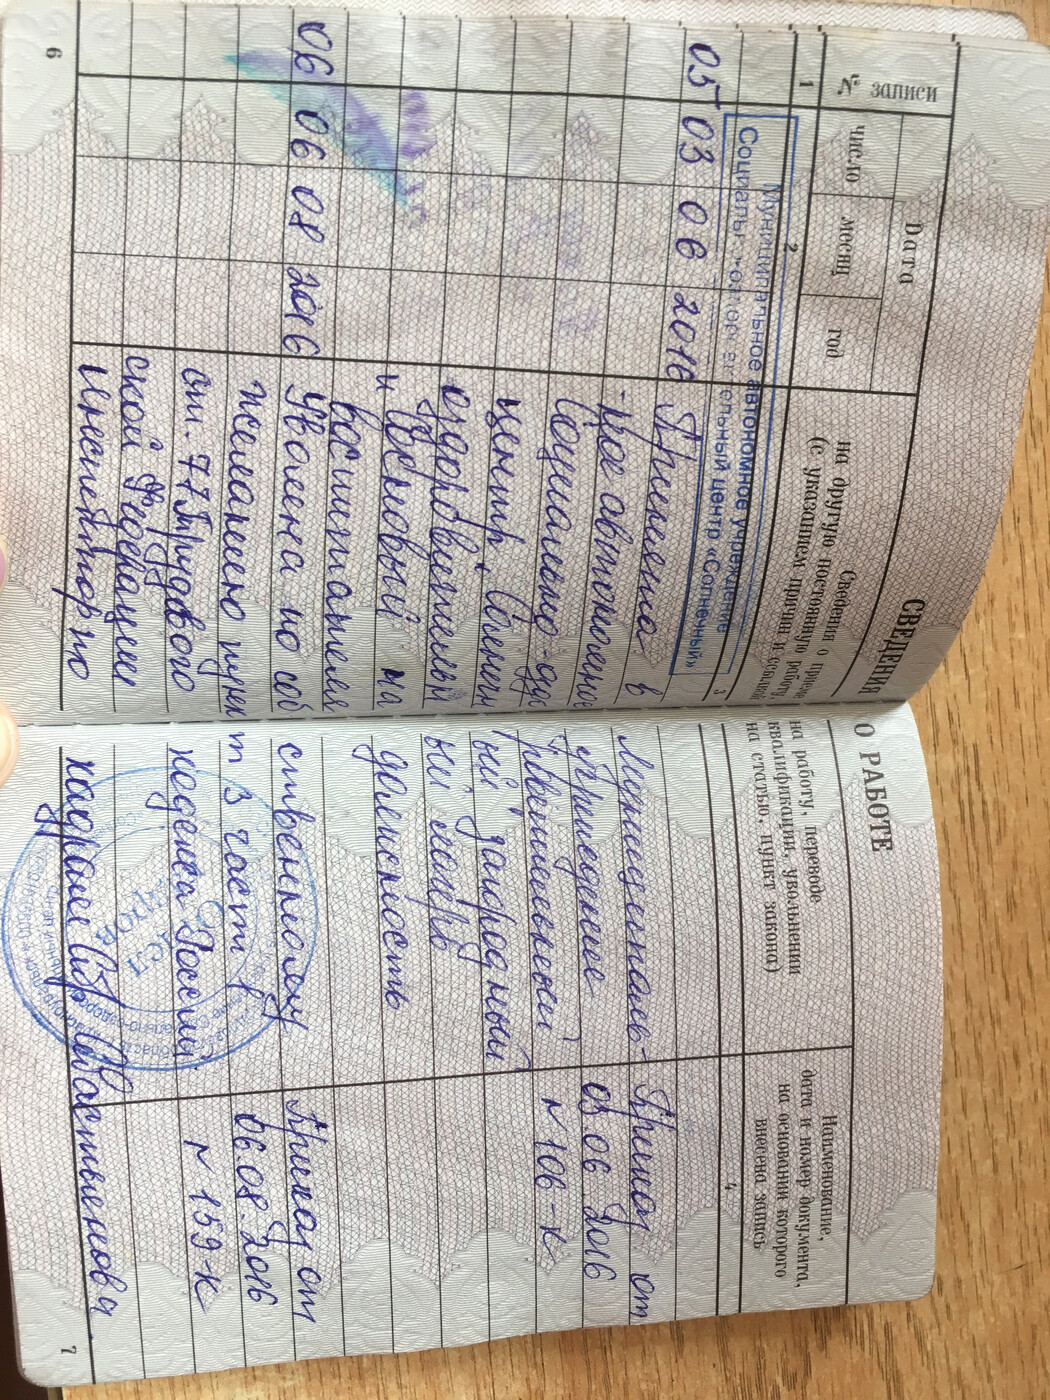 СВЕДЕНИЯ О РАБОТЕ
№ записи
Дата
число
месяц
год
Сведения о приеме на работу, переводе
на другую постоянную работу, квалификации, увольнении
(с указанием причин и ссылкой на статью, пункт закона)
Наименование,
дата и номер документа,
на основании которого
внесена запись
1 2 3 4
Муниципальное автономное учреждение
центр «Солнечный»
05 03 06 2016 Принята в Муниципаль- Приказ от
ное автономное учреждение 03.06.2016
Социально-оздоровительный N 106-к
центр "Солнечный" загородный
оздоровительный лагерь
и основной на должность
воспитателя
06 06 08 2016 Уволена по собственному Приказ от
желанию пункт 3 часть 1 06.08.2016
ст. 77 Трудового кодекса Россий N 159-к
ской Федерации
Инспектор по кадрам
6
7